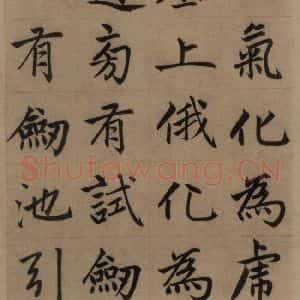 氣化為虎
上俄化為
旁有試劒
有劒池引
Shufawang.CN